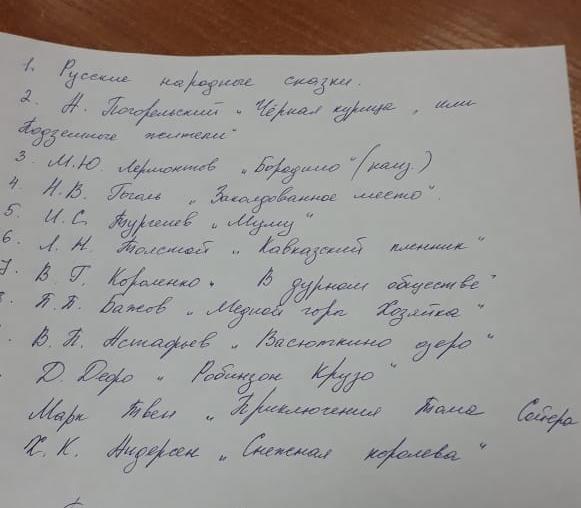 1. Русские народные сказки.
2. А. Погорельский „Чёрная курица, или
Подземные жители"
3. М.Ю. Лермонтов „Бородино" (наиз.)
4. Н.В. Гоголь „Заколдованное место".
5. И.С. Тургенев „Муму"
6. Л. Н. Толстой „Кавказский пленник"
7. В. Г. Короленко. В дурном обществе"
П.П. Бажов „Медной горы Хозяйка"
В. П. Астафьев „Васюткино озеро"
Д. Дефо „Робинзон Крузо"
Марк Твен „Приключения Тома Сойера
Х. К. Андерсен „Снежная королева"